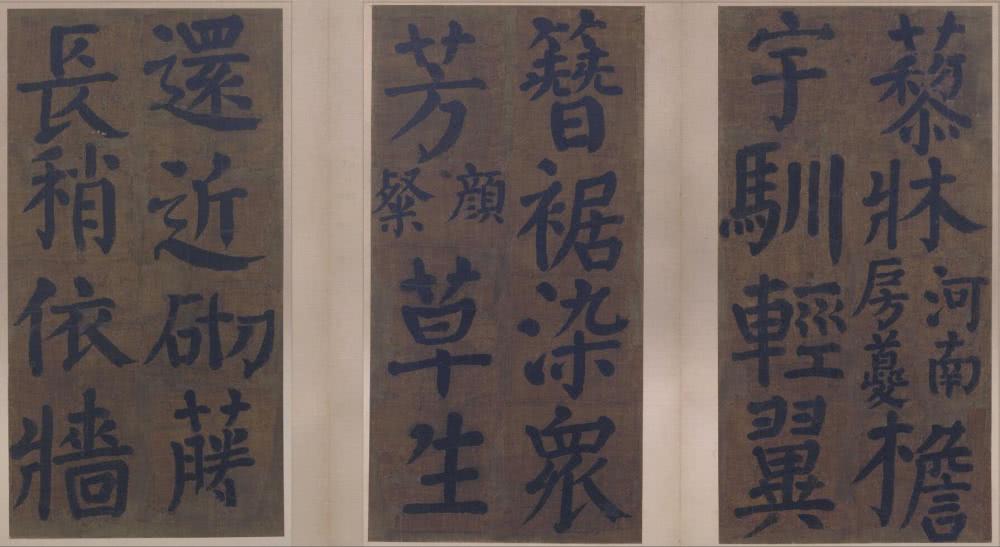 藜牀
河南
房夔
檐
宇馴輕翼
簪裾染眾
芳
顏
粲
草生
還近砌藤
長稍依牆